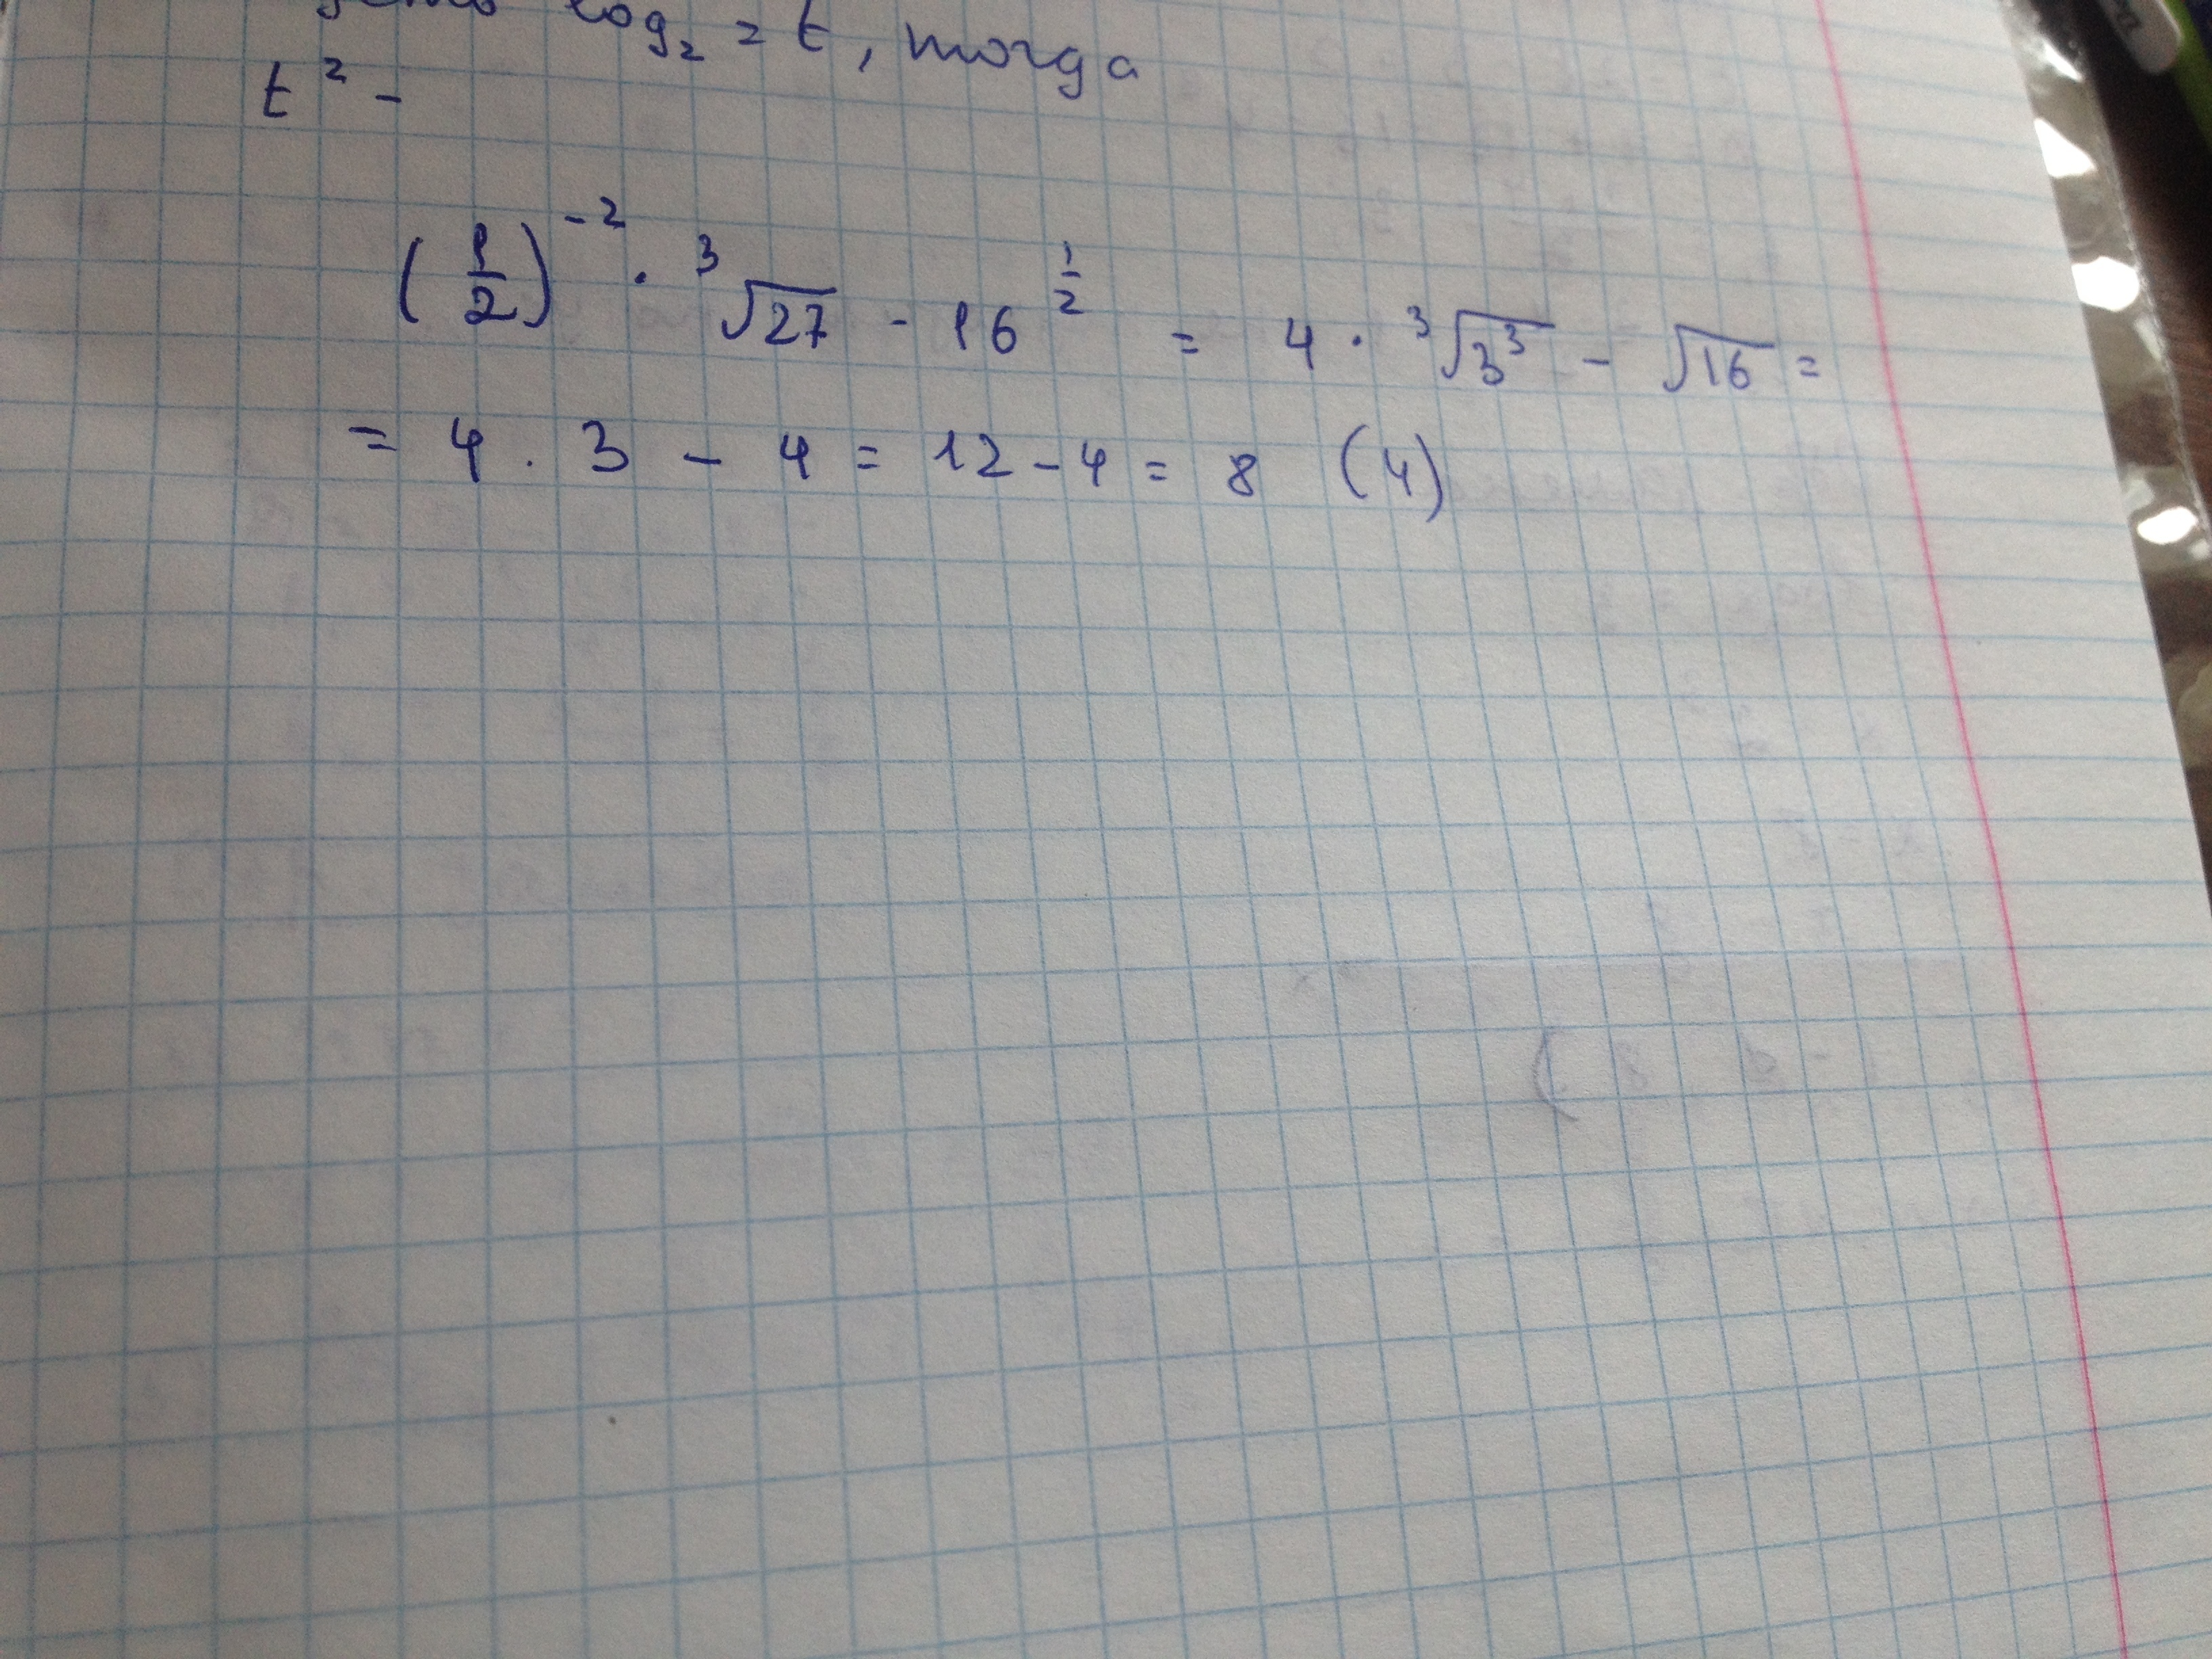 log₂ = t, тогда
t² -
(1/2)⁻² · ³√27 - 16^(1/2) = 4 · ³√3³ - √16 =
= 4 · 3 - 4 = 12 - 4 = 8 (4)